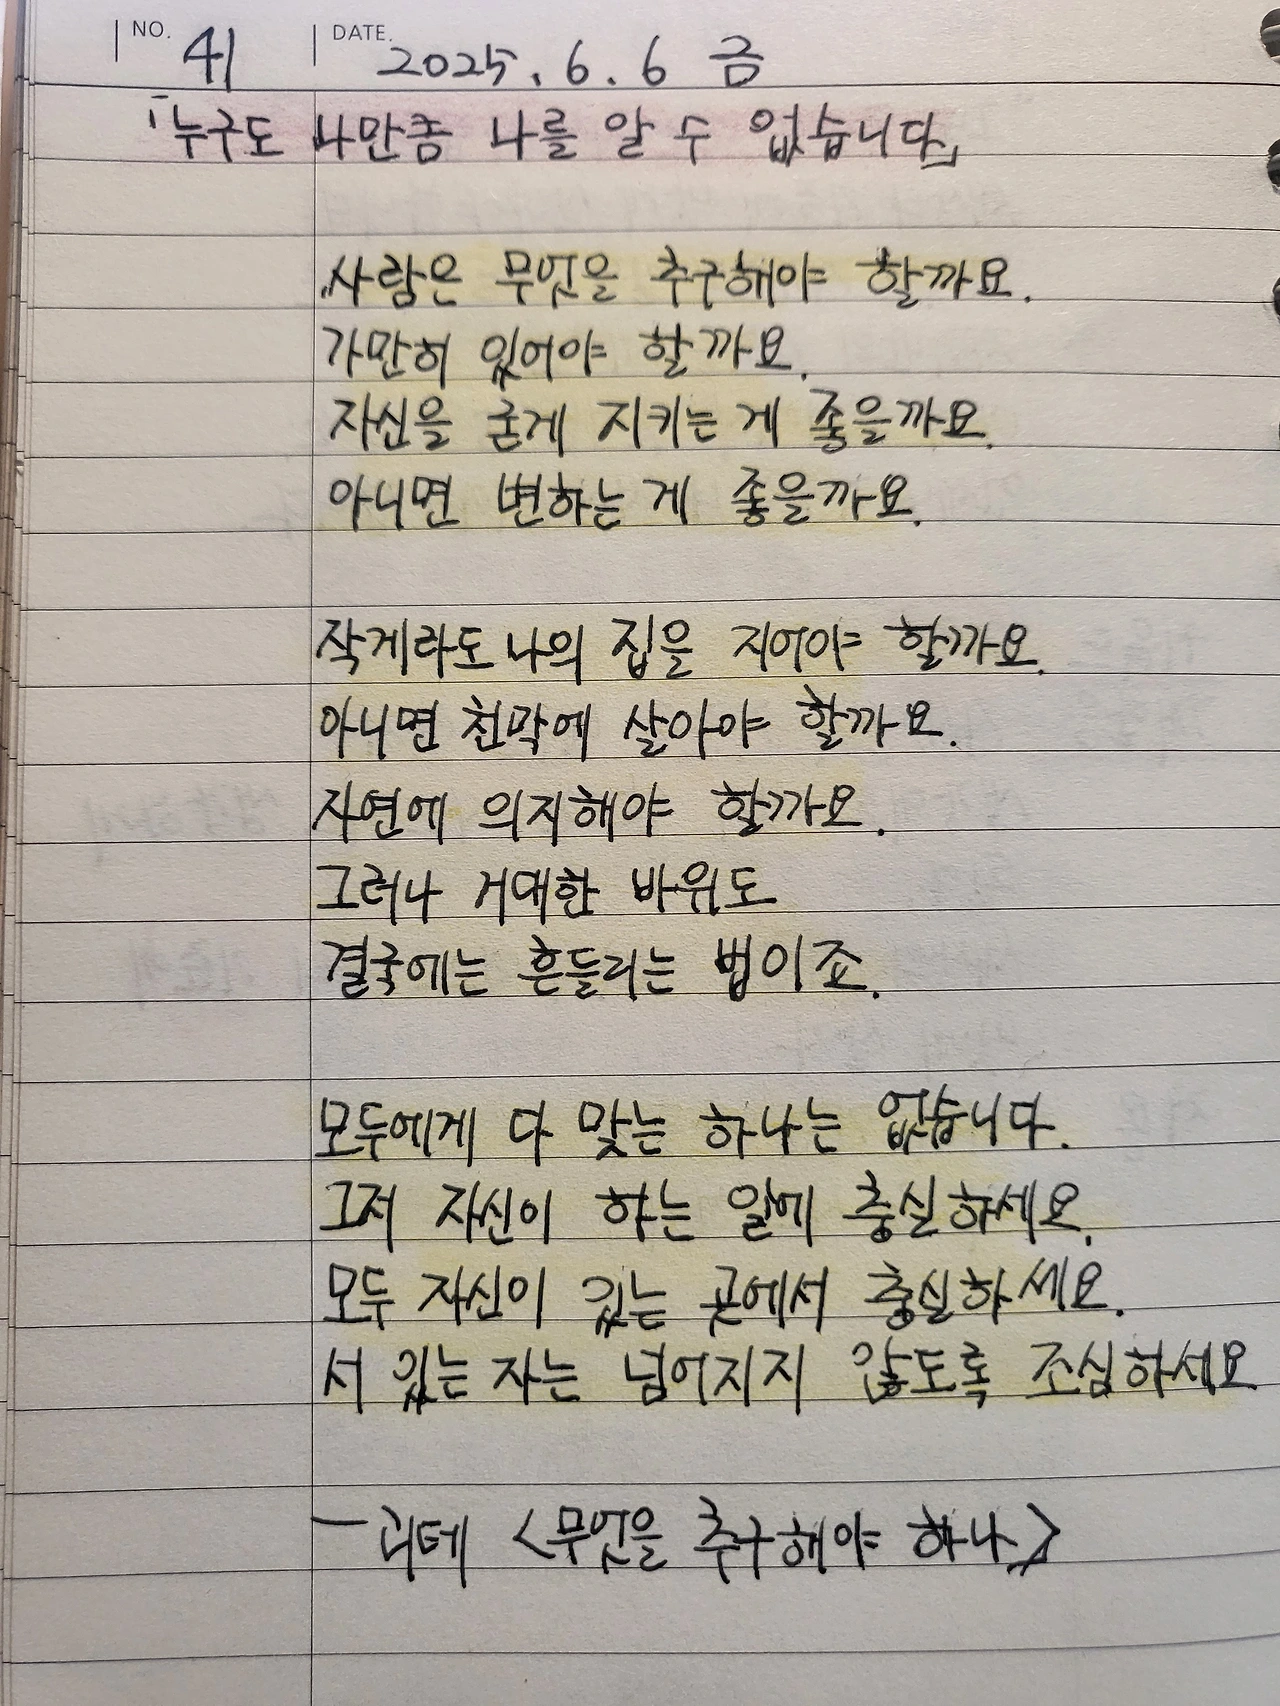 NO. 41 DATE. 2025. 6. 6 금
「누구도 나만큼 나를 알 수 없습니다」
사람은 무엇을 추구해야 할까요.
가만히 있어야 할까요.
자신을 굳게 지키는 게 좋을까요.
아니면 변하는 게 좋을까요.
작게라도 나의 집을 지어야 할까요.
아니면 천막에 살아야 할까요.
자연에 의지해야 할까요.
그러나 거대한 바위도
결국에는 흔들리는 법이죠.
모두에게 다 맞는 하나는 없습니다.
그저 자신이 하는 일에 충실하세요.
모두 자신이 있는 곳에서 충실하세요.
서 있는 자는 넘어지지 않도록 조심하세요
— 괴테 <무엇을 추구해야 하나>